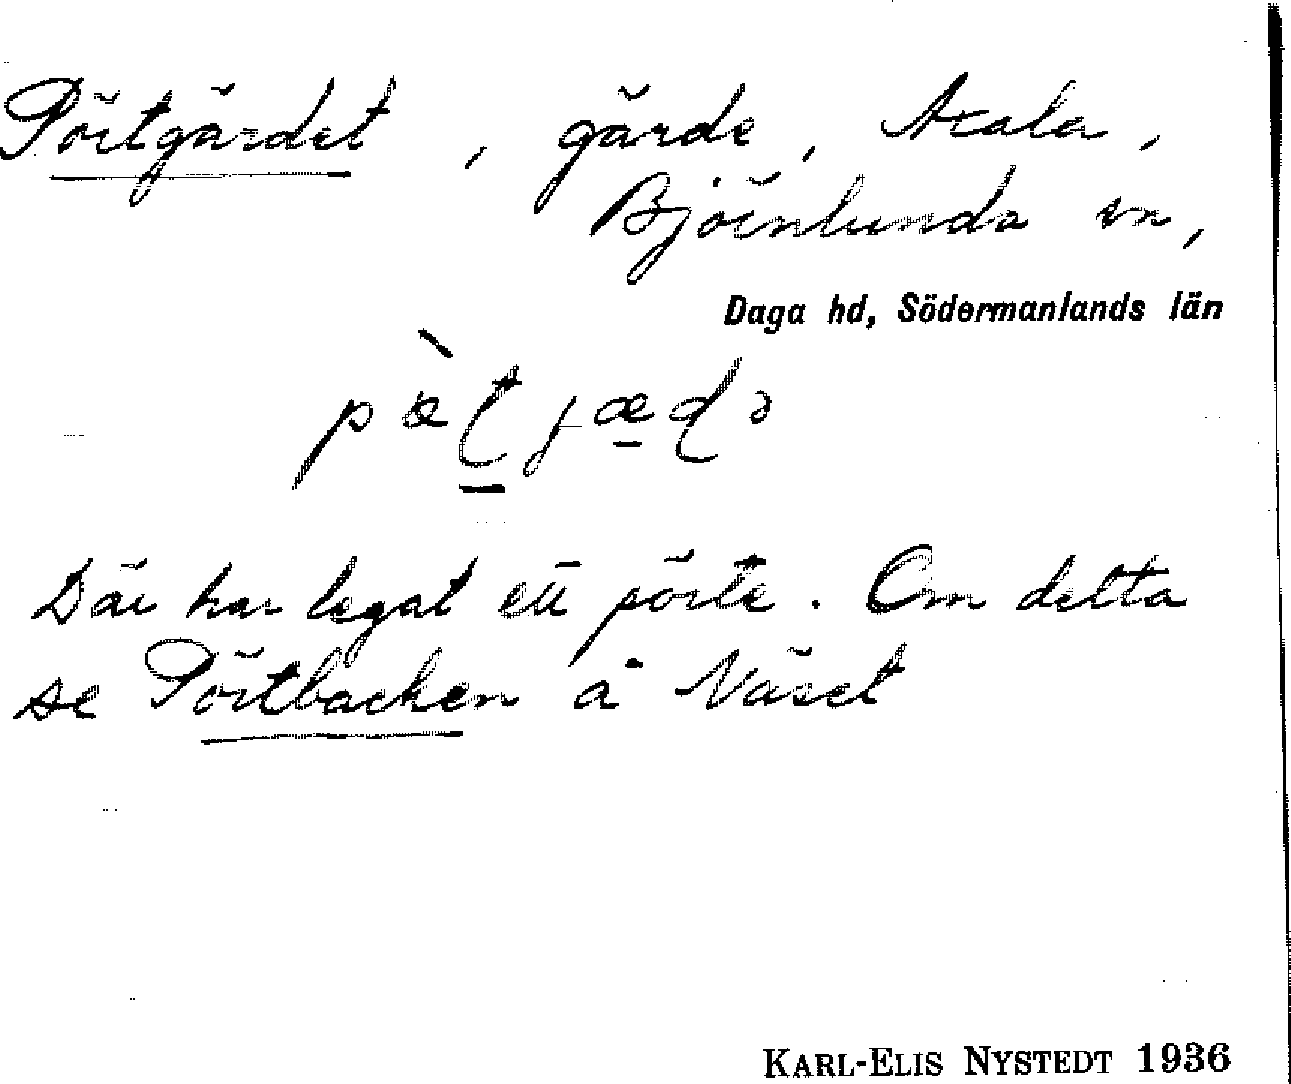 Pörtgärdet, gärde, Axala,
Björnlunda sn,
Daga hd, Södermanlands län
Där har legat ett pörte. Om detta
se Pörtbacken å Näset
KARL-ELIS NYSTEDT 1936